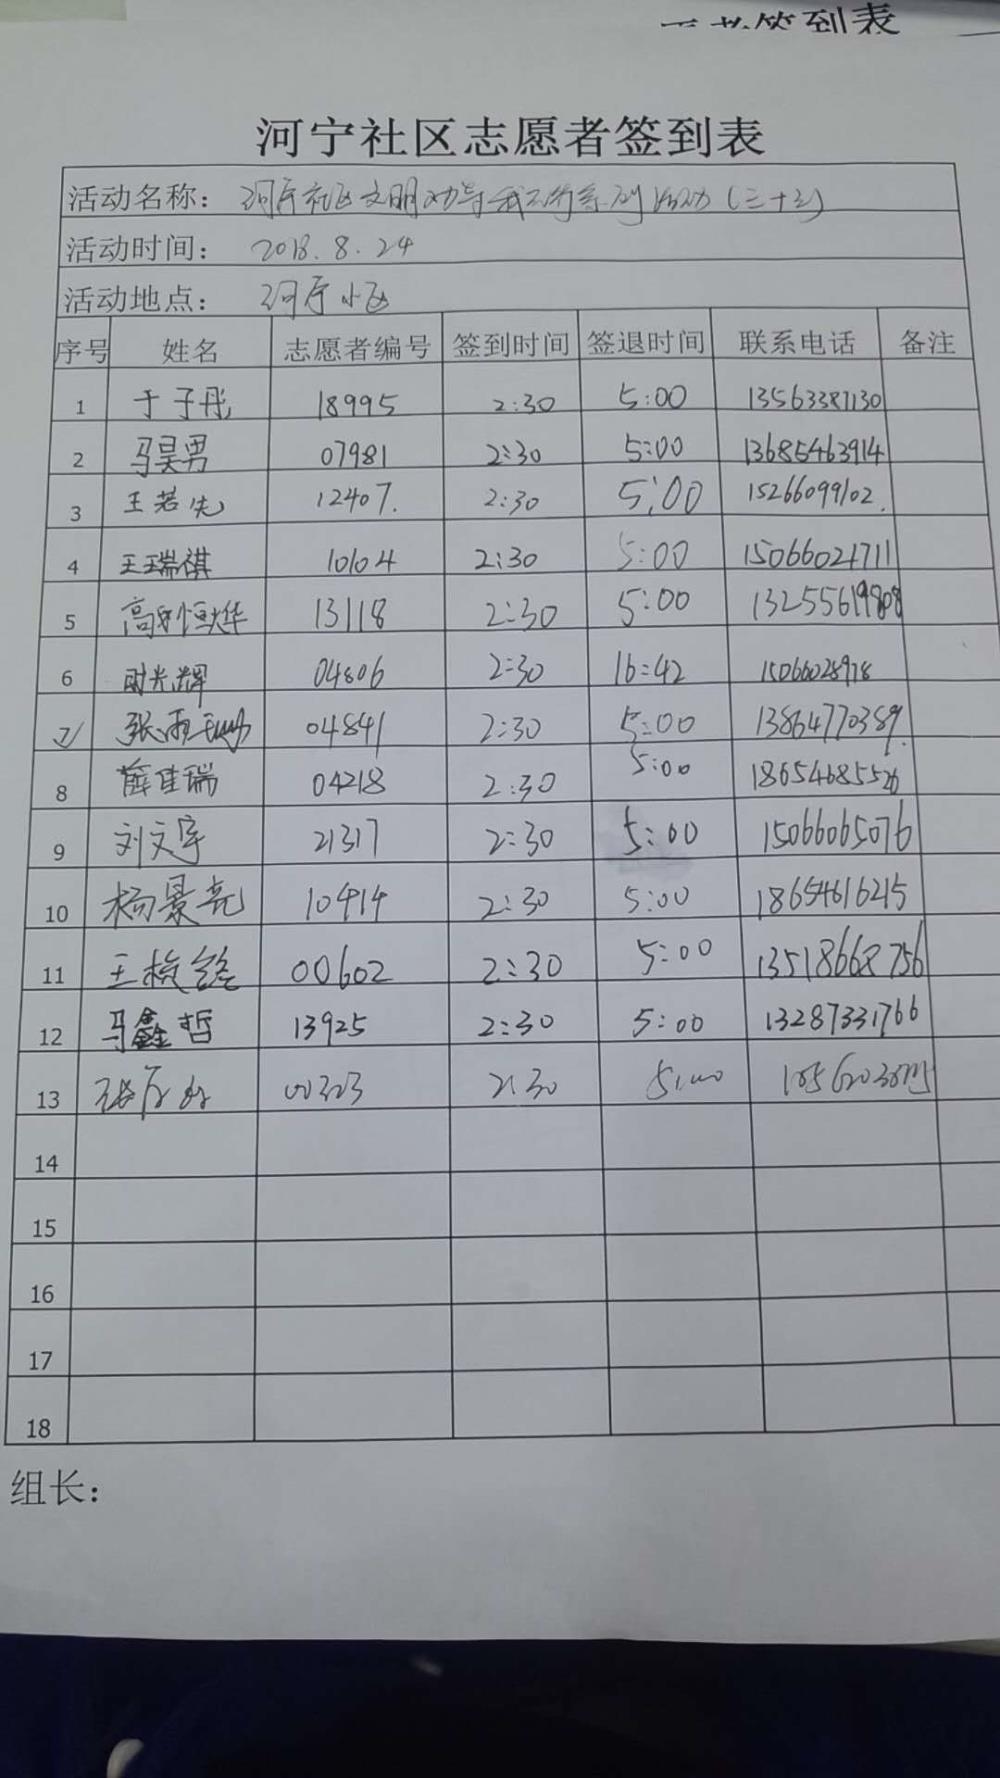 签到表
河宁社区志愿者签到表
活动名称：河宁社区文明劝导我先行系列活动（三十三）
活动时间：2018.8.24
活动地点：河宁小区
序号 姓名 志愿者编号 签到时间 签退时间 联系电话 备注
1 于子彤 18995 2:30 5:00 13563387130
2 马昊男 07981 2:30 5:00 13685463914
3 王若先 12407. 2:30 5:00 15266099102.
4 王瑞祺 10104 2:30 5:00 15066024711
5 13118 2:30 5:00
6 时光辉 04806 2:30 16:42 15066028978
7 04841 2:30 5:00 13864770389.
8 薛佳瑞 04218 2:30 5:00 18654685526
9 刘文宇 21317 2:30 5:00 15066065076
10 杨景亮 10414 2:30 5:00 18654616215
11 王 00602 2:30 5:00 13518668756
12 马鑫哲 13925 2:30 5:00 13287331766
13 00323 2:30 5:00
14
15
16
17
18
组长：